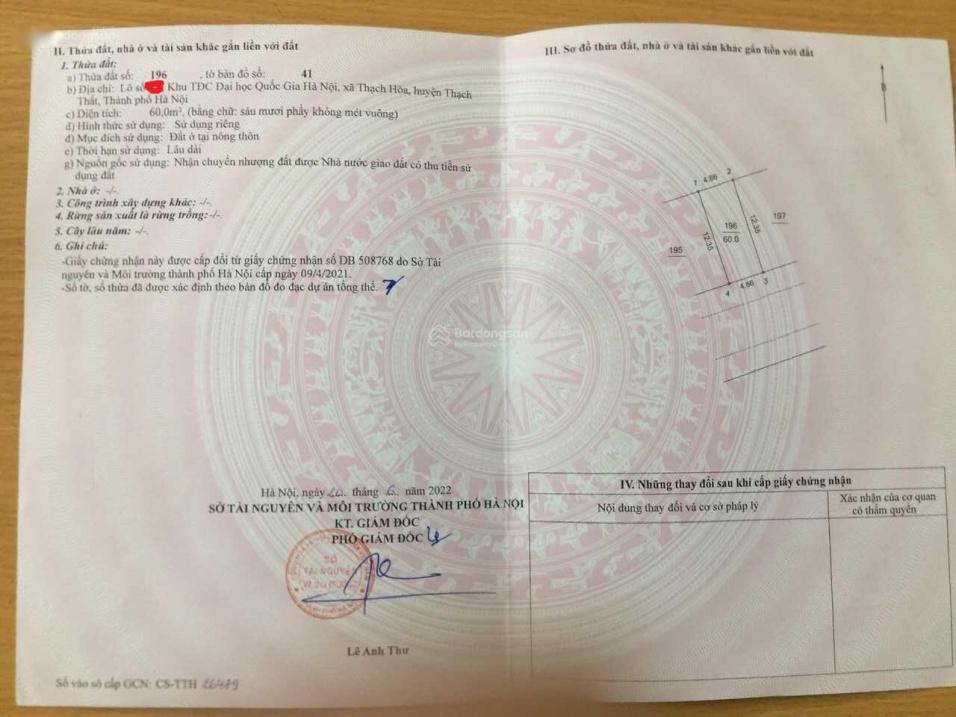 II. Thửa đất, nhà ở và tài sản khác gắn liền với đất
1. Thửa đất:
a) Thửa đất số: 196 , tờ bản đồ số: 41
b) Địa chỉ: Lô số Khu TĐC Đại học Quốc Gia Hà Nội, xã Thạch Hòa, huyện Thạch
Thất, Thành phố Hà Nội
c) Diện tích: 60,0m², (bằng chữ: sáu mươi phẩy không mét vuông)
d) Hình thức sử dụng: Sử dụng riêng
đ) Mục đích sử dụng: Đất ở tại nông thôn
e) Thời hạn sử dụng: Lâu dài
g) Nguồn gốc sử dụng: Nhận chuyển nhượng đất được Nhà nước giao đất có thu tiền sử
dụng đất
2. Nhà ở: -/-.
3. Công trình xây dựng khác: -/-.
4. Rừng sản xuất là rừng trồng: -/-.
5. Cây lâu năm: -/-.
6. Ghi chú:
-Giấy chứng nhận này được cấp đổi từ giấy chứng nhận số DB 508768 do Sở Tài
nguyên và Môi trường thành phố Hà Nội cấp ngày 09/4/2021.
-Số tờ, số thửa đã được xác định theo bản đồ đo đạc dự án tổng thể.
Hà Nội, ngày 20 tháng 6 năm 2022
SỞ TÀI NGUYÊN VÀ MÔI TRƯỜNG THÀNH PHỐ HÀ NỘI
KT. GIÁM ĐỐC
PHÓ GIÁM ĐỐC
SỞ
TÀI NGUYÊN
Lê Anh Thư
Số vào sổ cấp GCN: CS-TTH
III. Sơ đồ thửa đất, nhà ở và tài sản khác gắn liền với đất
B
1 4.86 2
12.35 196 12.35 197
195 60.0
4 4.86 3
Batdongsan
IV. Những thay đổi sau khi cấp giấy chứng nhận
Nội dung thay đổi và cơ sở pháp lý
Xác nhận của cơ quan
có thẩm quyền